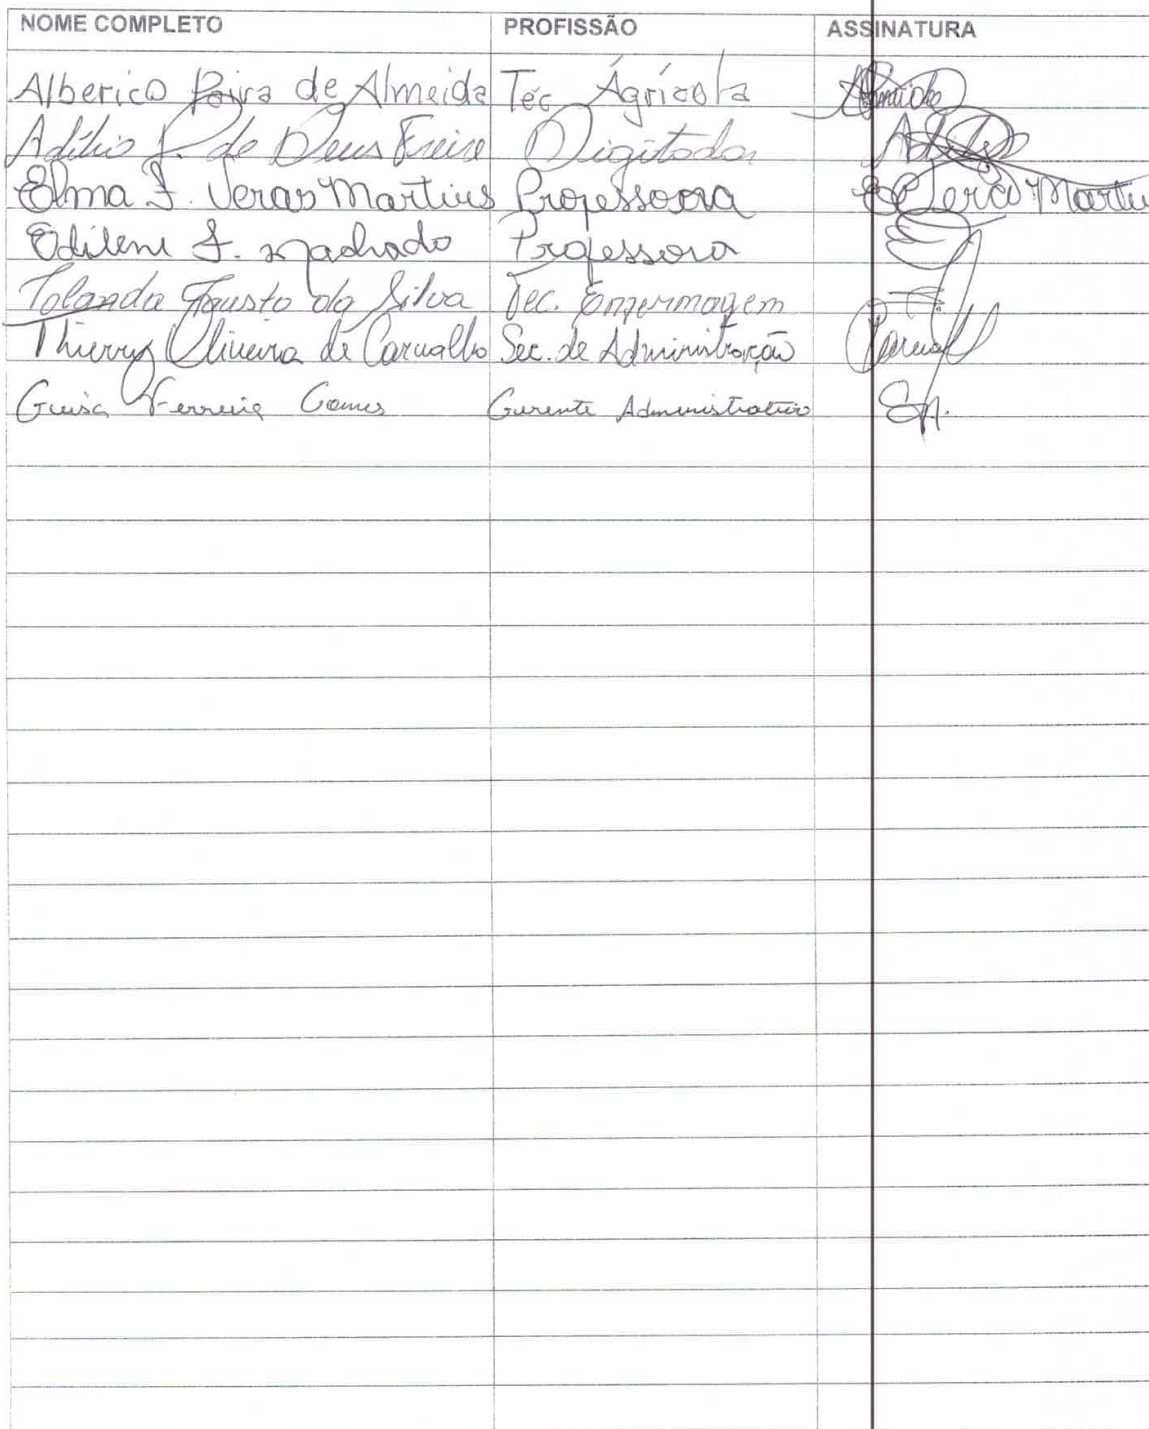 NOME COMPLETO PROFISSÃO ASSINATURA
Alberico Paiva de Almeida Téc Agrícola Almeida
Adílio F. de Deus Freire Digitador
Elma F. Veras Martins Professora E Veras Martin
Edilene F. Machado Professora
Iolanda Fausto da Silva Tec. Enfermagem
Thierry Oliveira de Carvalho Sec. de Administração Carvall
Geisa Ferreira Gomes Gerente Administrativo